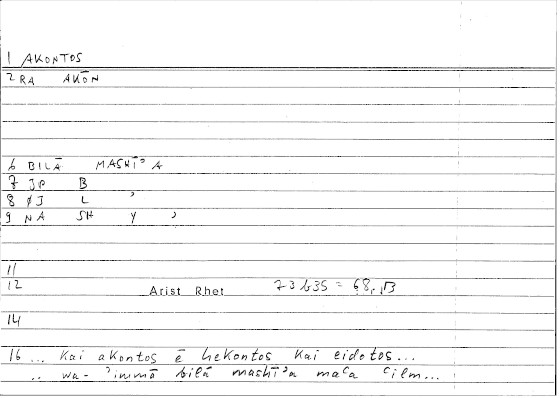 1 AKONTOS
2 RA AKŌN
6 BILĀ MASHĪʾA
7 JP B
8 ØJ L ʾ
9 NA SH Y ʾ
11
12 Arist Rhet 73b35 = 68,13
14
16 ... Kai akontos ē hekontos Kai eidotos...
.. wa-ʾimmā bilā mashīʾa maʿa ʿilm...